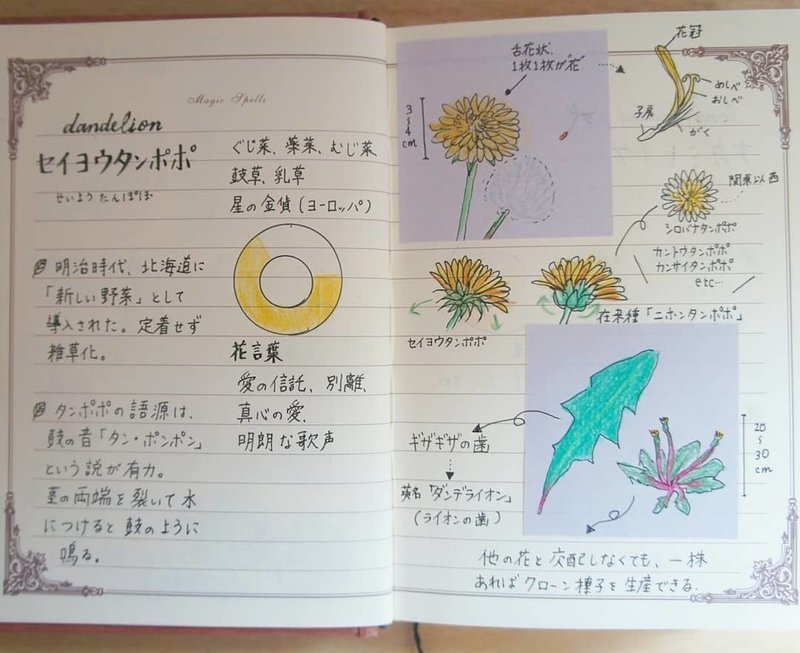 Magic Spells
dandelion
セイヨウタンポポ
せいようたんぽぽ
ぐじ菜、薬菜、むじ菜
鼓草、乳草
星の金貨(ヨーロッパ)
明治時代、北海道に
「新しい野菜」として
導入された。定着せず
雑草化。
タンポポの語源は、
鼓の音「タン・ポンポン」
という説が有力。
茎の両端を裂いて水
につけると鼓のように
鳴る。
花言葉
愛の信託、別離、
真心の愛、
明朗な歌声
舌花状、
1枚1枚が花
3〜4cm
花冠
めしべ
おしべ
子房
がく
関東以西
シロバナタンポポ
カントウタンポポ
カンサイタンポポ
etc…
セイヨウタンポポ
在来種「ニホンタンポポ」
ギザギザの歯
英名「ダンデライオン」
(ライオンの歯)
20〜30cm
他の花と交配しなくても、一株
あればクローン種子を生産できる。